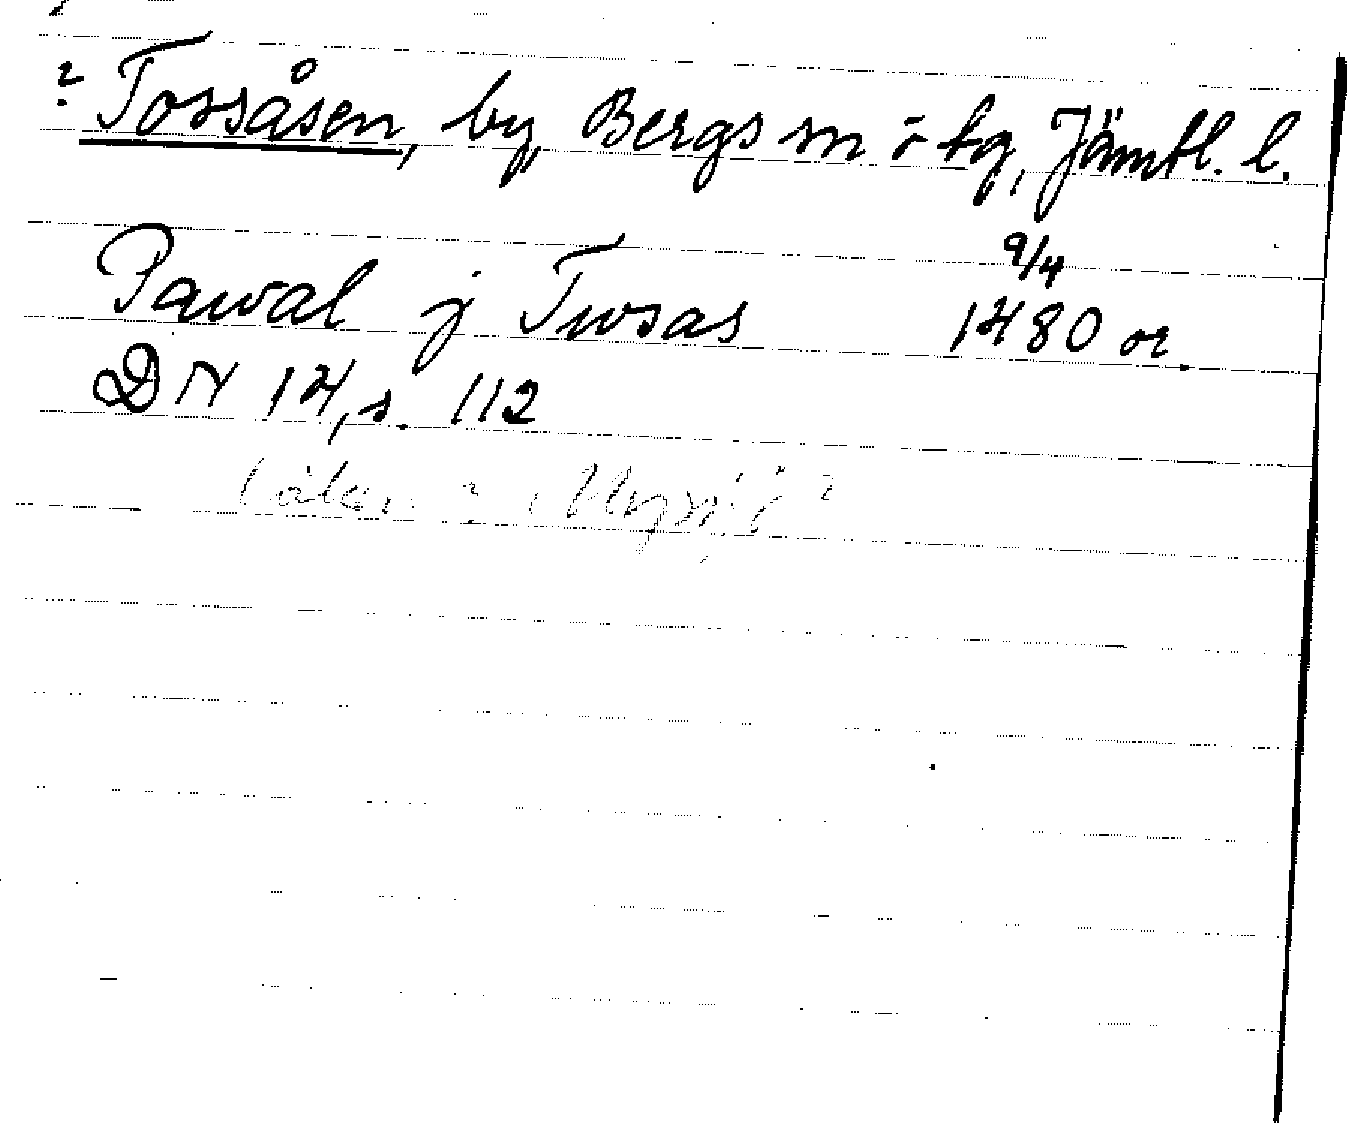 ? Tossåsen, by, Bergs sn o tg, Jämtl. l.
9/4
Pawal j Twsas 1480 or.
DN 14, s. 112